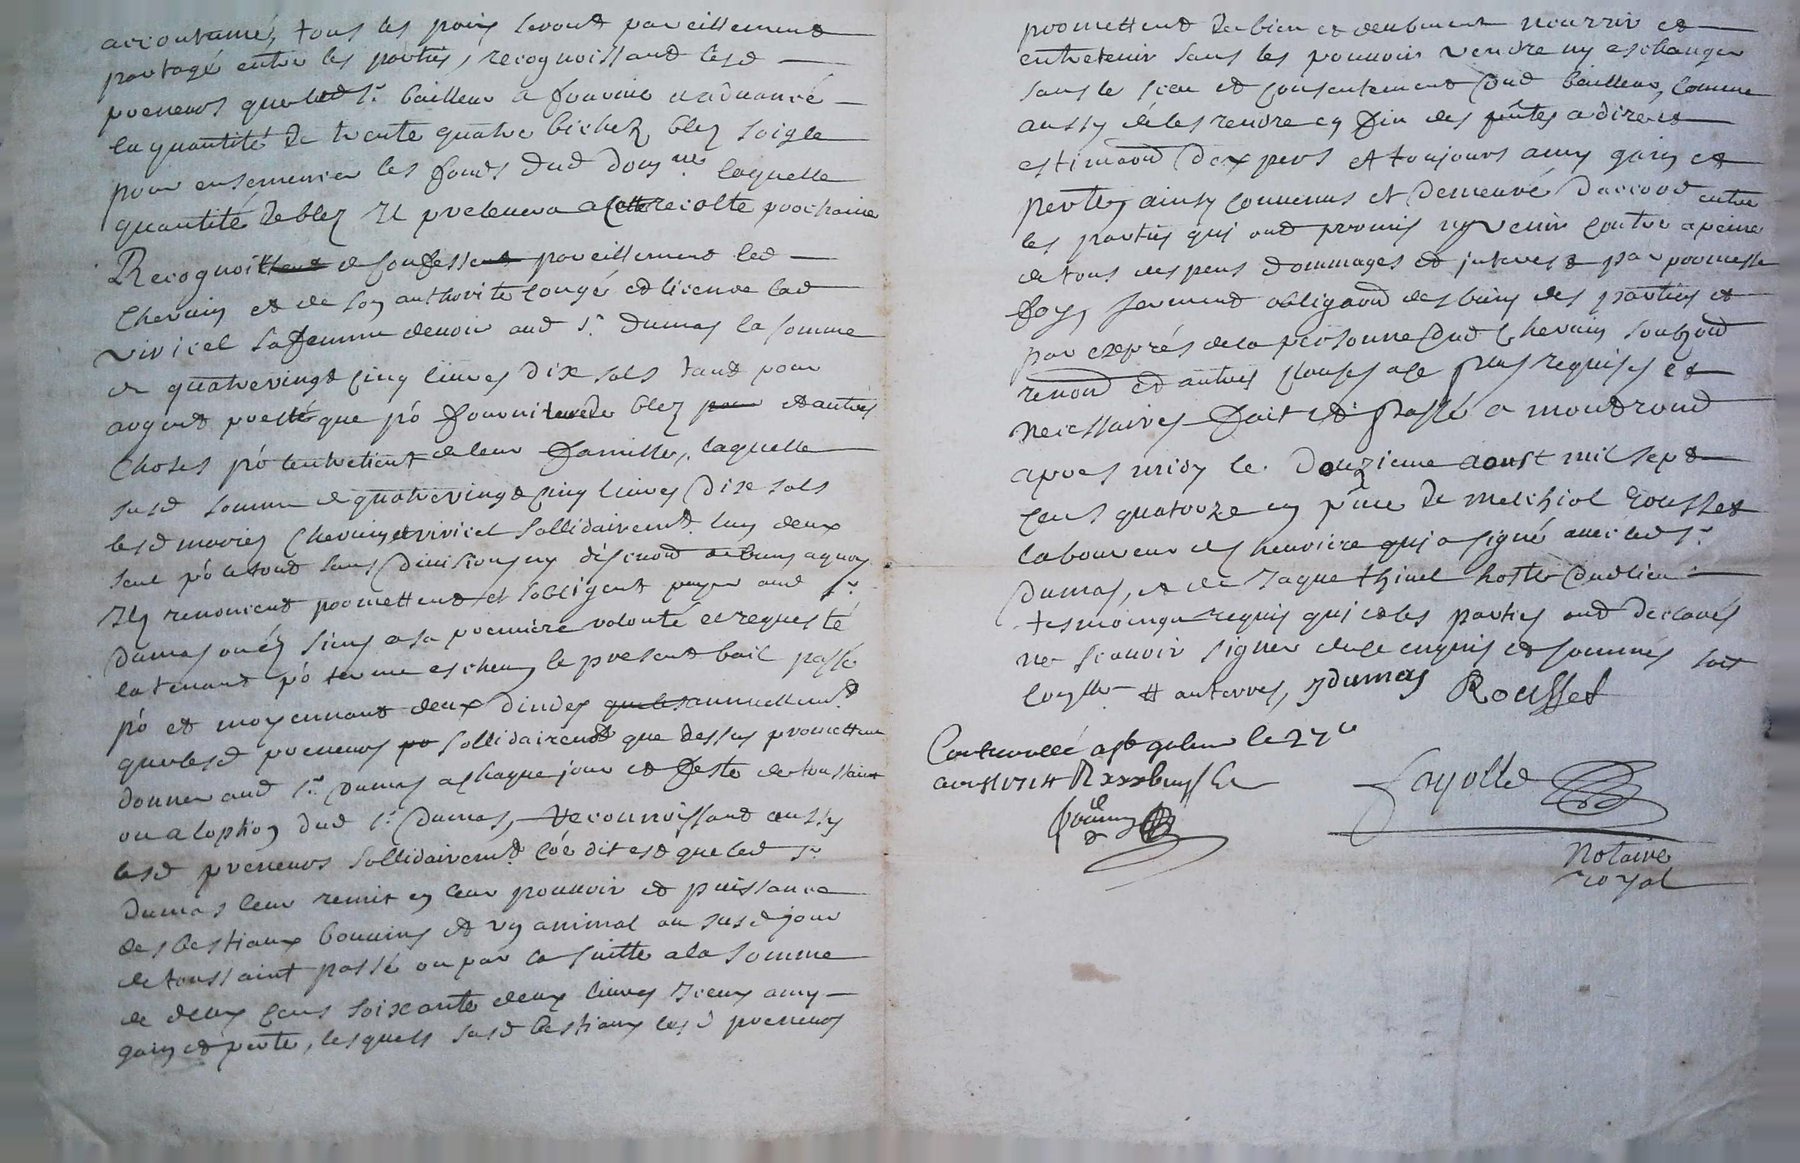 accoutumé, tous les poix seront pareillement
partagé entre les parties, recognoissant lesd
preneurs que led sr bailleur a fourni et advancé
la quantité de trente quatre bichez blez soigle
pour ensemencer les fonds dud domne laquelle
quantité de blez il prelevera a cette recolte prochaine
Recognoissent et confessent pareillement led
Chervin et de son authorité congé et licence lad
vivicel sa femme devoir aud sr Dumas la somme
de quatrevingt cinq livres dix sols tant pour
argent presté que po fourniture de blez pour et autres
choses po lentretient de leur famille, laquelle
susd somme de quatrevingt cinq livres dix sols
lesd mariez Chervin et vivicel sollidairemt lun deux
seul po le tout sans division ny discution de biens a quoy
Ils renoncent promettent et sobligent payer aud sr
Dumas ou es siens a sa premiere volonté et requeste
la tenant po terme escheu, le present bail passé
po et moyennant deux dindes annuellemt
que lesd preneurs po sollidairemt que dessus promettent
donner aud sr Dumas a chaque jour et feste de toussaint
ou a loption dud sr Dumas, Reconnoissant aussy
lesd preneurs sollidairemt coe dit est que led sr
Dumas leur remit en leur pouvoir et puissance
des bestiaux bouvins et un animal au susd jour
de toussaint passé ou par la suitte a la somme
de deux cens soixante deux livres yceux a my
gain et perte, lesquels susd bestiaux lesd preneurs
promettent de bien et deubment nourrir et
entretenir sans les pouvoir vendre ny eschanger
sans le sceu et consentement dud bailleur, comme
aussy de les rendre en fin des pntes a dire et
estimaon dexpers et toujours a my gain et
perte, ainsy convenus et demeuré daccord entre
les parties qui ont promis ny venir contre a peine
de tous despens dommages et interest par promesse
foy, serment obligaon des biens des parties et
par exprés de la personne dud Chervin soubzon
renon et autres clauses a ce plus requises et
necessaires fait et passé a montrond
apres midy le douzieme aoust mil sept
cens quatorze en pnce de melchiol rousset
laboureur des heuviere qui a signé avec led sr
Dumas, et de Jaque thivel hoste dud lieu
tesmoings requis qui et les parties ont declarés
ne scavoir signer de ce enquis et sommés soit
Dumas Rousset
Controollé a st galmier le 27e
aoust 1714 R
Fayolle
Notaire
royal